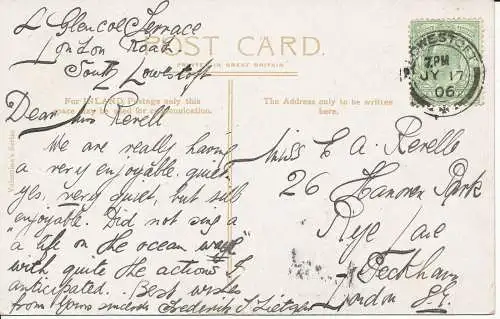 2 Glencoe Terrace
London Road
South Lowestoft
POST CARD.
PRINTED IN GREAT BRITAIN
For INLAND Postage only this
space may be used for communication.
The Address only to be written
here.
Dear Miss Revell
We are really having
a very enjoyable. quiet,
yes, very quiet, but still
enjoyable. Did not sing a
"a life on the ocean wave"
with quite the actions I
anticipated. Best wishes
from Yours sincerely Frederick
Valentine's Series
LOWESTOFT
2 PM
JY 17
06
Miss E A Revelle
26 Hanover Park
Rye Lane
Peckham
London S.E.